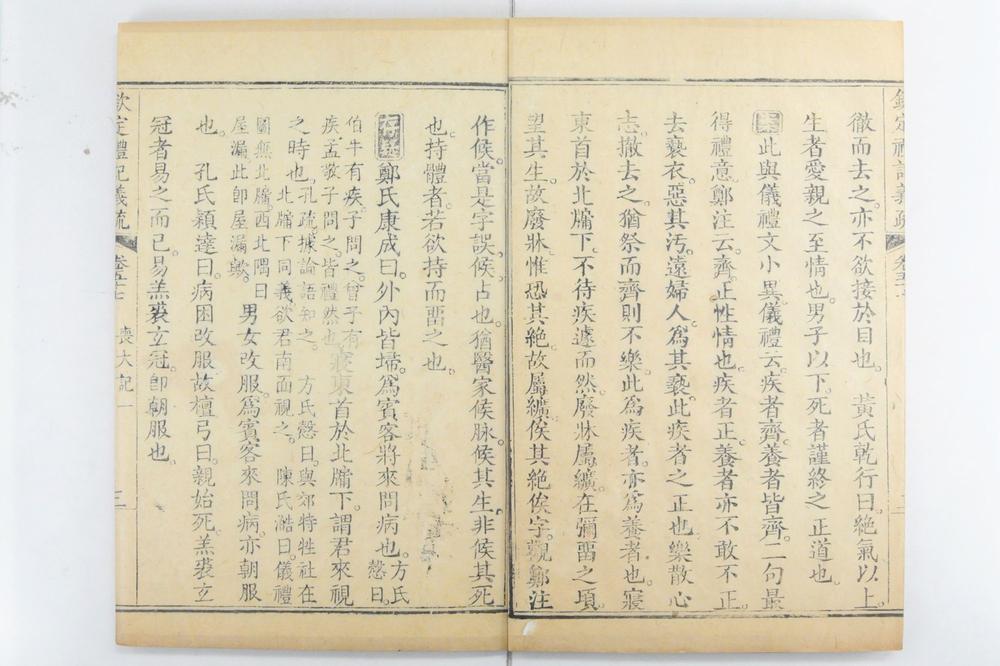 徹而去之亦不欲接於目也。黃氏乾行曰絕氣以上
生者愛親之至情也男子以下死者謹終之正道也。
案此與儀禮文小異儀禮云疾者齊養者皆齊二句最
得禮意鄭注云齊正性情也疾者正養者亦不敢不正
去褻衣惡其汚。遠婦人爲其褻此疾者之正也樂散心
志撤去之猶祭而齊則不樂此爲疾者亦爲養者也寢
東首於北牖下不待疾遽而然廢牀屬纊在彌畱之頃
望其生故廢牀惟恐其絕故屬纊俟其絕俟字觀鄭注
作候當是字誤候占也猶醫家候脉候其生非候其死
也持體者若欲持而畱之也。
存疑鄭氏康成曰外內皆埽爲賓客將來問病也。方氏慤曰
伯牛有疾子問之曾子有
疾孟敬子問之皆禮然也
寢東首於北牖下。謂君來視
之時也。孔疏據論語知之。方氏慤曰與郊特牲社在
北牖下同義欲君南面視之。陳氏澔曰儀禮
圖無北牖西北隅曰
屋漏此卽屋漏歟。
男女改服。爲賓客來問病亦朝服
也。孔氏穎達曰病困改服故檀弓曰親始死羔裘玄
冠者易之而已易羔裘玄冠卽朝服也。
欽定禮記義疏
卷五十七
喪大記一
三